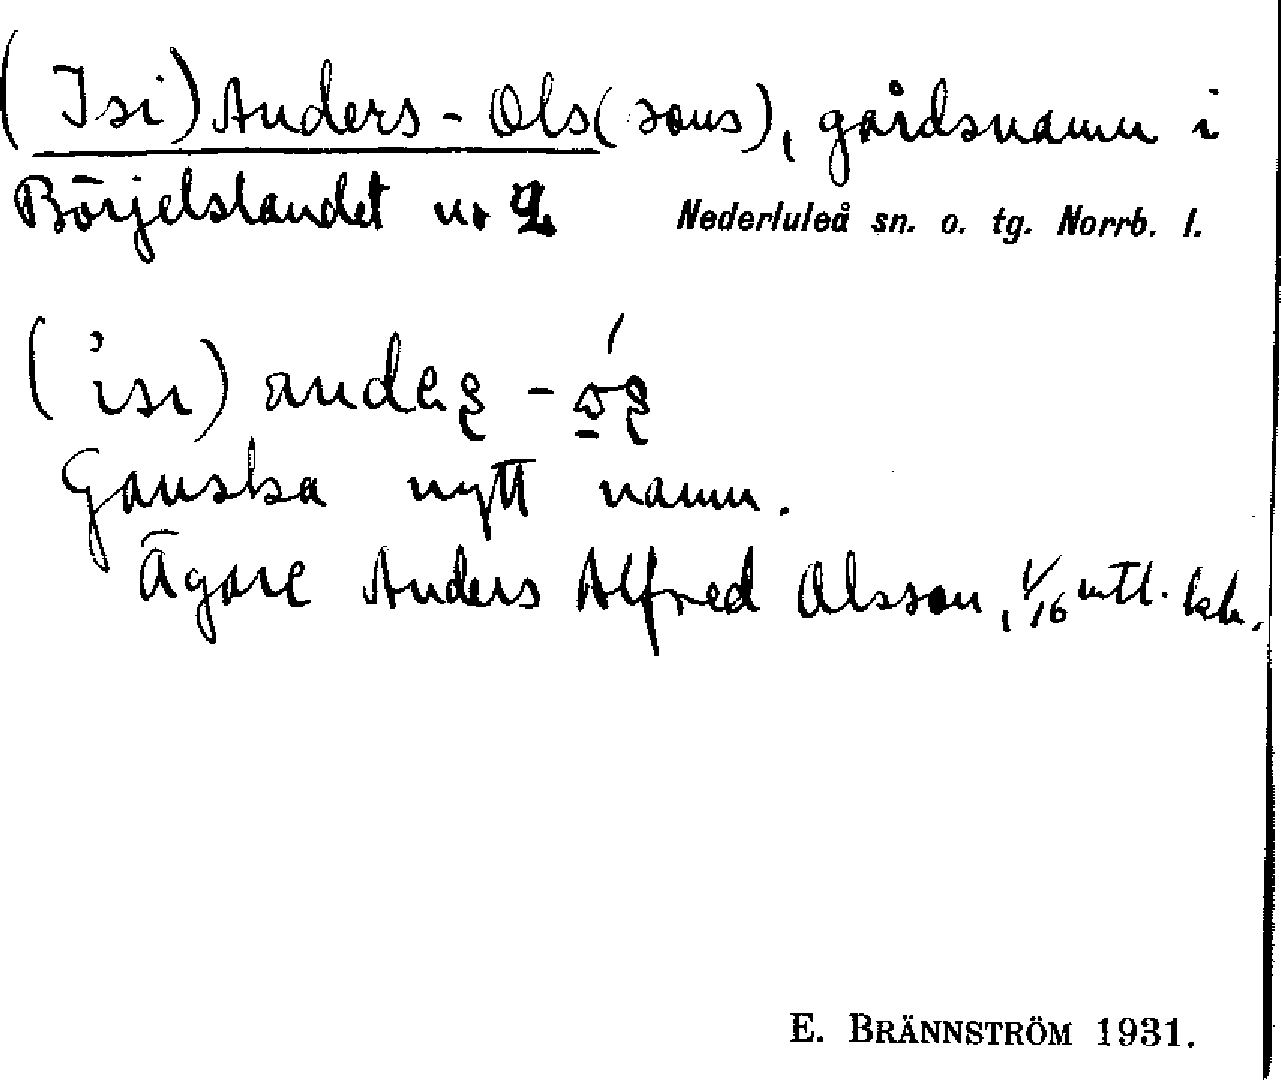 (Isi) Anders-Ols(sons), gårdsnamn i
Börjelslandet nr 2 Nederluleå sn. o. tg. Norrb. l.
( isı) andeʂ -
Ganska nytt namn.
Ägare Anders Alfred Olsson, 1/16 mtl. kh.
E. BRÄNNSTRÖM 1931.